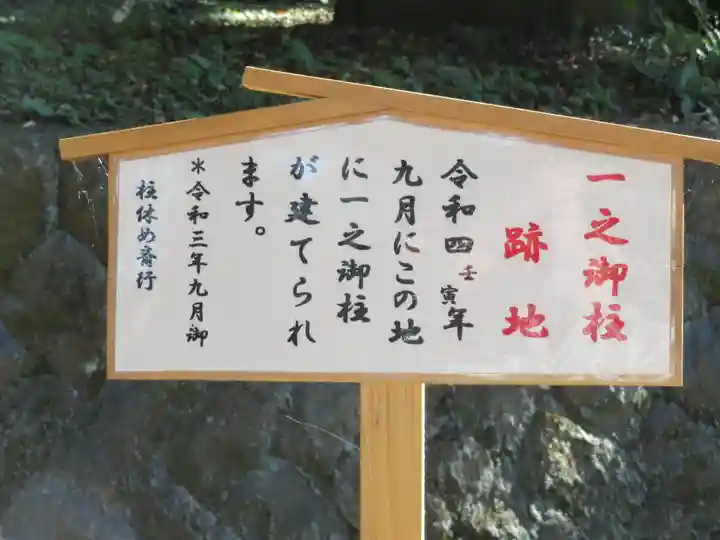 一之御柱
跡地
令和四壬寅年
九月にこの地
に一之御柱
が建てられ
ます。
＊令和三年九月御
柱休め斎行